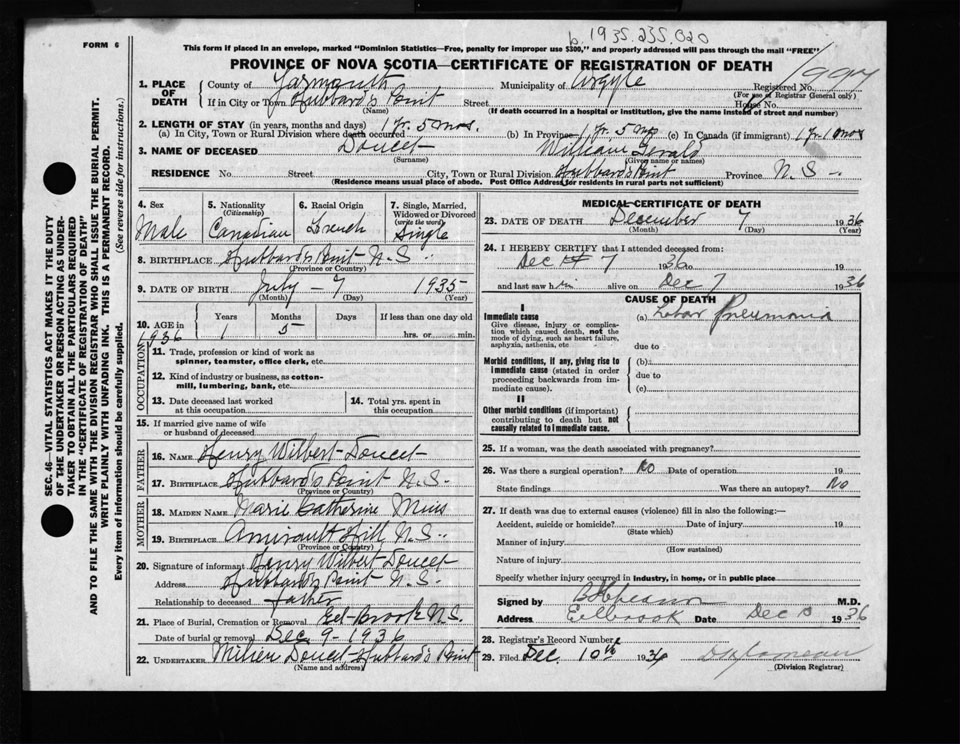 b. 1935.235.020
FORM 6
This form if placed in an envelope, marked "Dominion Statistics—Free, penalty for improper use $300," and properly addressed will pass through the mail "FREE"
PROVINCE OF NOVA SCOTIA—CERTIFICATE OF REGISTRATION OF DEATH
1. PLACE OF DEATH
County of Yarmouth Municipality of Argyle Registered No.
(For use of Registrar General only)
If in City or Town Hubbard's Point Street House No.
(Name) (If death occurred in a hospital or institution, give the name instead of street and number)
2. LENGTH OF STAY (in years, months and days) 1 Yr. 5 mos.
(a) In City, Town or Rural Division where death occurred (b) In Province 1 Yr. 5 Mos (c) In Canada (if immigrant)
3. NAME OF DECEASED Doucet William Gerald
(Surname) (Given name or names)
RESIDENCE No. Street City, Town or Rural Division Hubbard's Point Province N.S.
(Residence means usual place of abode. Post Office Address for residents in rural parts not sufficient)
4. Sex
Male
5. Nationality
(Citizenship)
Canadian
6. Racial Origin
French
7. Single, Married, Widowed or Divorced
(write the word)
Single
8. BIRTHPLACE Hubbard's Point N.S.
(Province or Country)
9. DATE OF BIRTH July - 7 1935
(Month) (Day) (Year)
10. AGE in Years Months Days If less than one day old
1936 1 5 hrs. or min.
OCCUPATION
11. Trade, profession or kind of work as spinner, teamster, office clerk, etc.
12. Kind of industry or business, as cotton-mill, lumbering, bank, etc.
13. Date deceased last worked at this occupation
14. Total yrs. spent in this occupation
15. If married give name of wife or husband of deceased
FATHER
16. NAME Henry Wilbert Doucet
17. BIRTHPLACE Hubbard's Point N.S.
(Province or Country)
MOTHER
18. MAIDEN NAME Marie Catherine Mius
19. BIRTHPLACE Amirault Hill N.S.
(Province or Country)
20. Signature of informant Henry Wilbert Doucet
Address Hubbard's Point N.S.
Relationship to deceased father
21. Place of Burial, Cremation or Removal Eel-Brook N.S.
Date of burial or removal Dec. 9 - 1936
22. UNDERTAKER Doucet Hubbard's Point
(Name and address)
MEDICAL CERTIFICATE OF DEATH
23. DATE OF DEATH December 7 1936
(Month) (Day) (Year)
24. I HEREBY CERTIFY that I attended deceased from:
Dec 7 1936 to 19
and last saw him alive on Dec 7 1936
CAUSE OF DEATH
I
Immediate cause (a) Lobar Pneumonia
Give disease, injury or complication which caused death, not the mode of dying, such as heart failure, asphyxia, asthenia, etc
due to
Morbid conditions, if any, giving rise to immediate cause (stated in order proceeding backwards from immediate cause).
(b)
due to
(c)
II
Other morbid conditions (if important) contributing to death but not causally related to immediate cause.
25. If a woman, was the death associated with pregnancy?
26. Was there a surgical operation? No Date of operation 19
State findings Was there an autopsy? No
27. If death was due to external causes (violence) fill in also the following:—
Accident, suicide or homicide? Date of injury 19
(State which)
Manner of injury
(How sustained)
Nature of injury
Specify whether injury occurred in industry, in home, or in public place
Signed by M.D.
Address Eelbrook Date Dec 1936
28. Registrar's Record Number
29. Filed Dec. 10th 1936
(Division Registrar)
SEC. 46—VITAL STATISTICS ACT MAKES IT THE DUTY
OF THE UNDERTAKER OR PERSON ACTING AS UNDER-
TAKER TO OBTAIN ALL THE PARTICULARS REQUIRED
IN THE "CERTIFICATE OF REGISTRATION OF DEATH"
AND TO FILE THE SAME WITH THE DIVISION REGISTRAR WHO SHALL ISSUE THE BURIAL PERMIT.
WRITE PLAINLY WITH UNFADING INK. THIS IS A PERMANENT RECORD.
Every item of information should be carefully supplied. (See reverse side for instructions.)